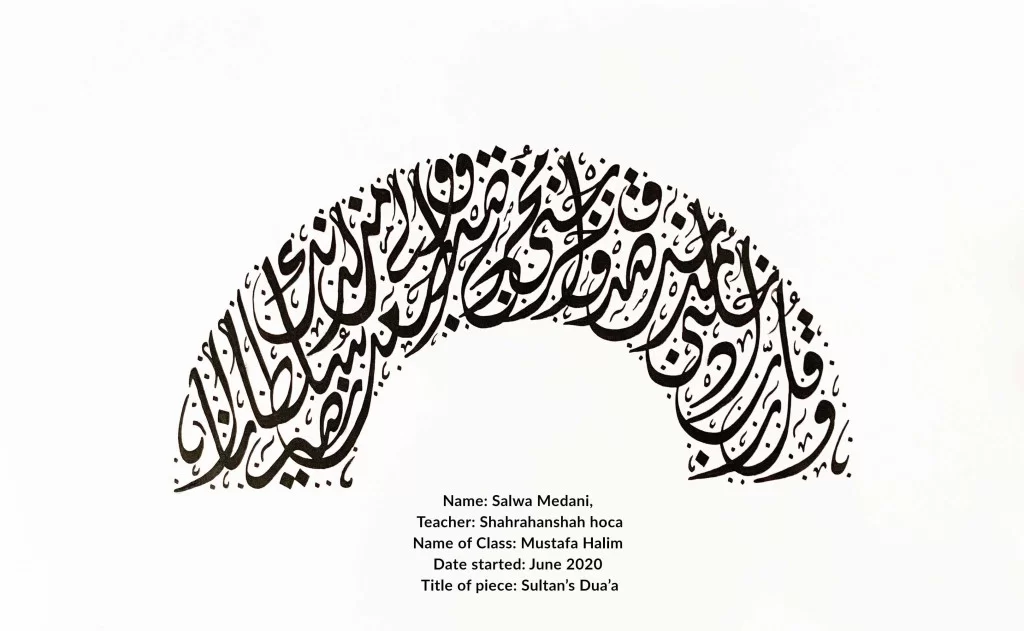 وقل رب أدخلني مدخل صدق وأخرجني مخرج صدق واجعل لي من لدنك سلطانا نصيرا
Name: Salwa Medani,
Teacher: Shahrahanshah hoca
Name of Class: Mustafa Halim
Date started: June 2020
Title of piece: Sultan’s Dua’a